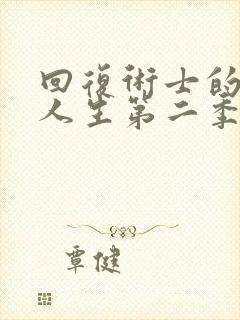 回復術士的
人生第二季
覃健